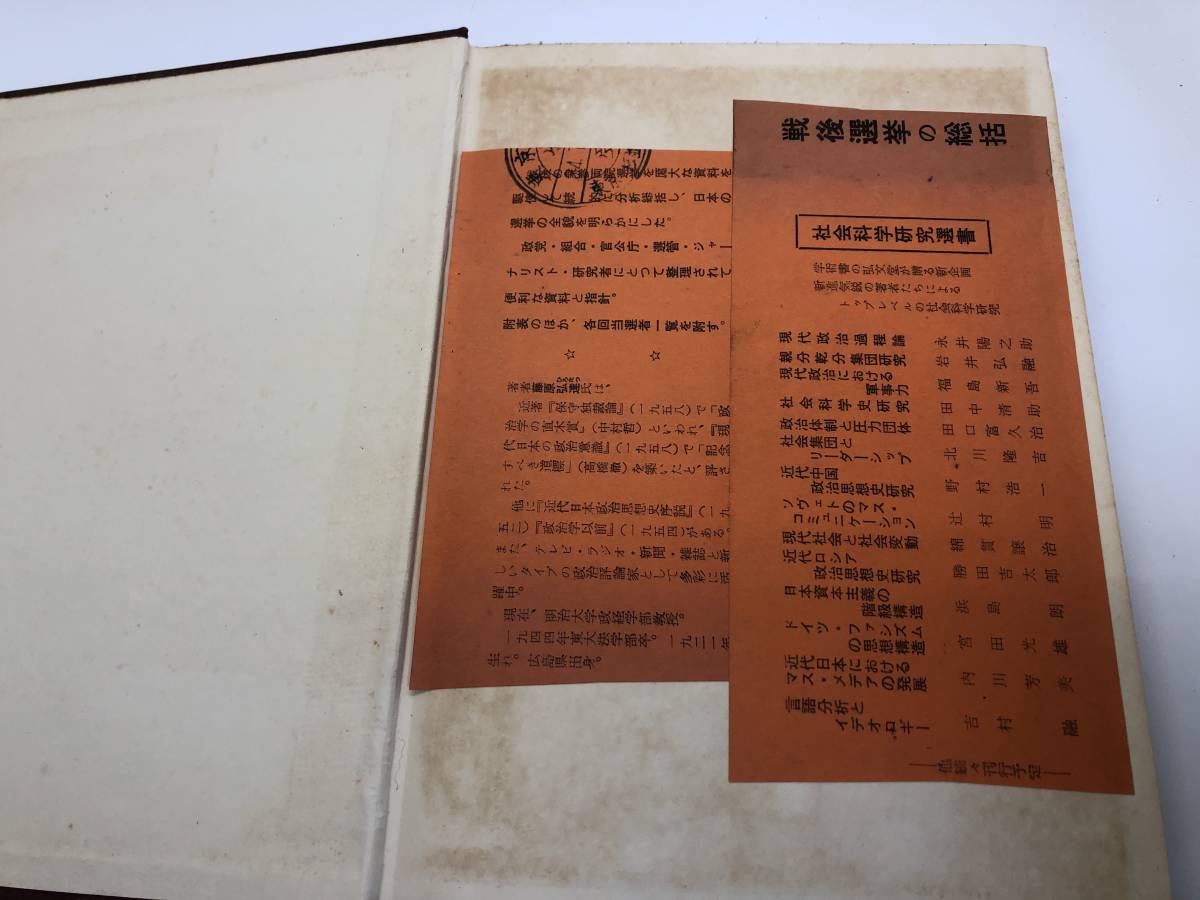 の衆参両院選挙を厖大な資料を
駆使して統 的に分析総括し、日本の
選挙の全貌を明らかにした。
政党・組合・官公庁・選管・ジャー
ナリスト・研究者にとつて整理されて
便利な資料と指針。
附表のほか、各回当選者一覧を附す。
☆ ☆
著者藤原弘達氏は、
近著『保守独裁論』(一九五八)で「政
治学の直木賞」(中村哲)といわれ、『現
代日本の政治意識』(一九五八)で「記念
すべき道標」(高橋徹)を築いたと、評さ
れた。
他に『近代日本政治思想史序説』(一九
五二)『政治学以前』(一九五四)がある。
また、テレビ・ラジオ・新聞・雑誌と新
しいタイプの政治評論家として多彩に活
躍中。
現在、明治大学政経学部教授。
一九四四年東大法学部卒。一九二一年
生れ。広島県出身。
戦後選挙の総括
社会科学研究選書
学術書の弘文堂が贈る新企画
新進気鋭の著者たちによる
トップレベルの社会科学研究
現代政治過程論 永井陽之助
親分乾分集団研究 岩井弘融
現代政治における
軍事力 福島新吾
社会科学史研究 田中清助
政治体制と圧力団体 田口富久治
社会集団と
リーダーシップ 北川隆吉
近代中国
政治思想史研究 野村浩一
ソヴェトのマス・
コミュニケーション 辻村明
現代社会と社会変動 綿貫譲治
近代ロシア
政治思想史研究 勝田吉太郎
日本資本主義の
階級構造 浜島朗
ドイツ・ファシズム
の思想構造 宮田光雄
近代日本における
マス・メデアの発展 内川芳美
言語分析と
イデオロギー 吉村融
―他続々刊行予定―